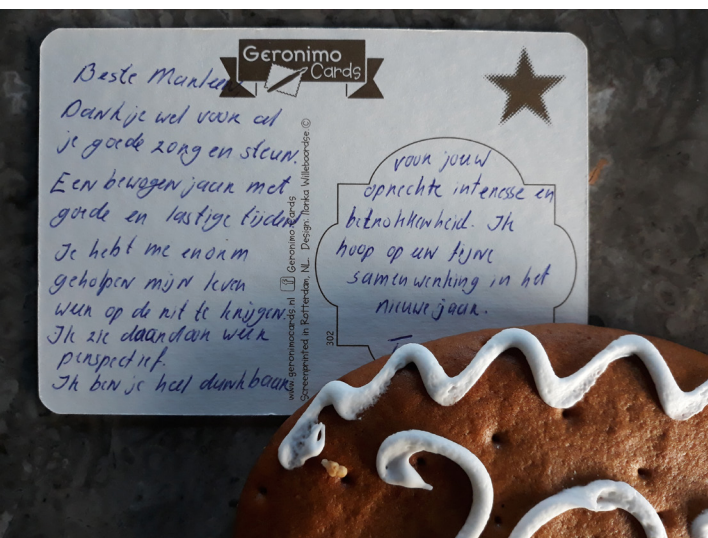 Geronimo
Cards
Beste Marleen
Dank je wel voor al
je goede zorg en steun.
Een bewogen jaar met
goede en lastige tijden
Je hebt me enorm
geholpen mijn leven
weer op de rit te krijgen.
Ik zie daardoor weer
perspectief.
Ik ben je heel dankbaar
www.geronimocards.nl f Geronimo.cards
Screenprinted in Rotterdam, NL. Design: Ilonka Willeboordse. ©
302
voor jouw
oprechte interesse en
betrokkenheid. Ik
hoop op een fijne
samenwerking in het
nieuwe jaar.